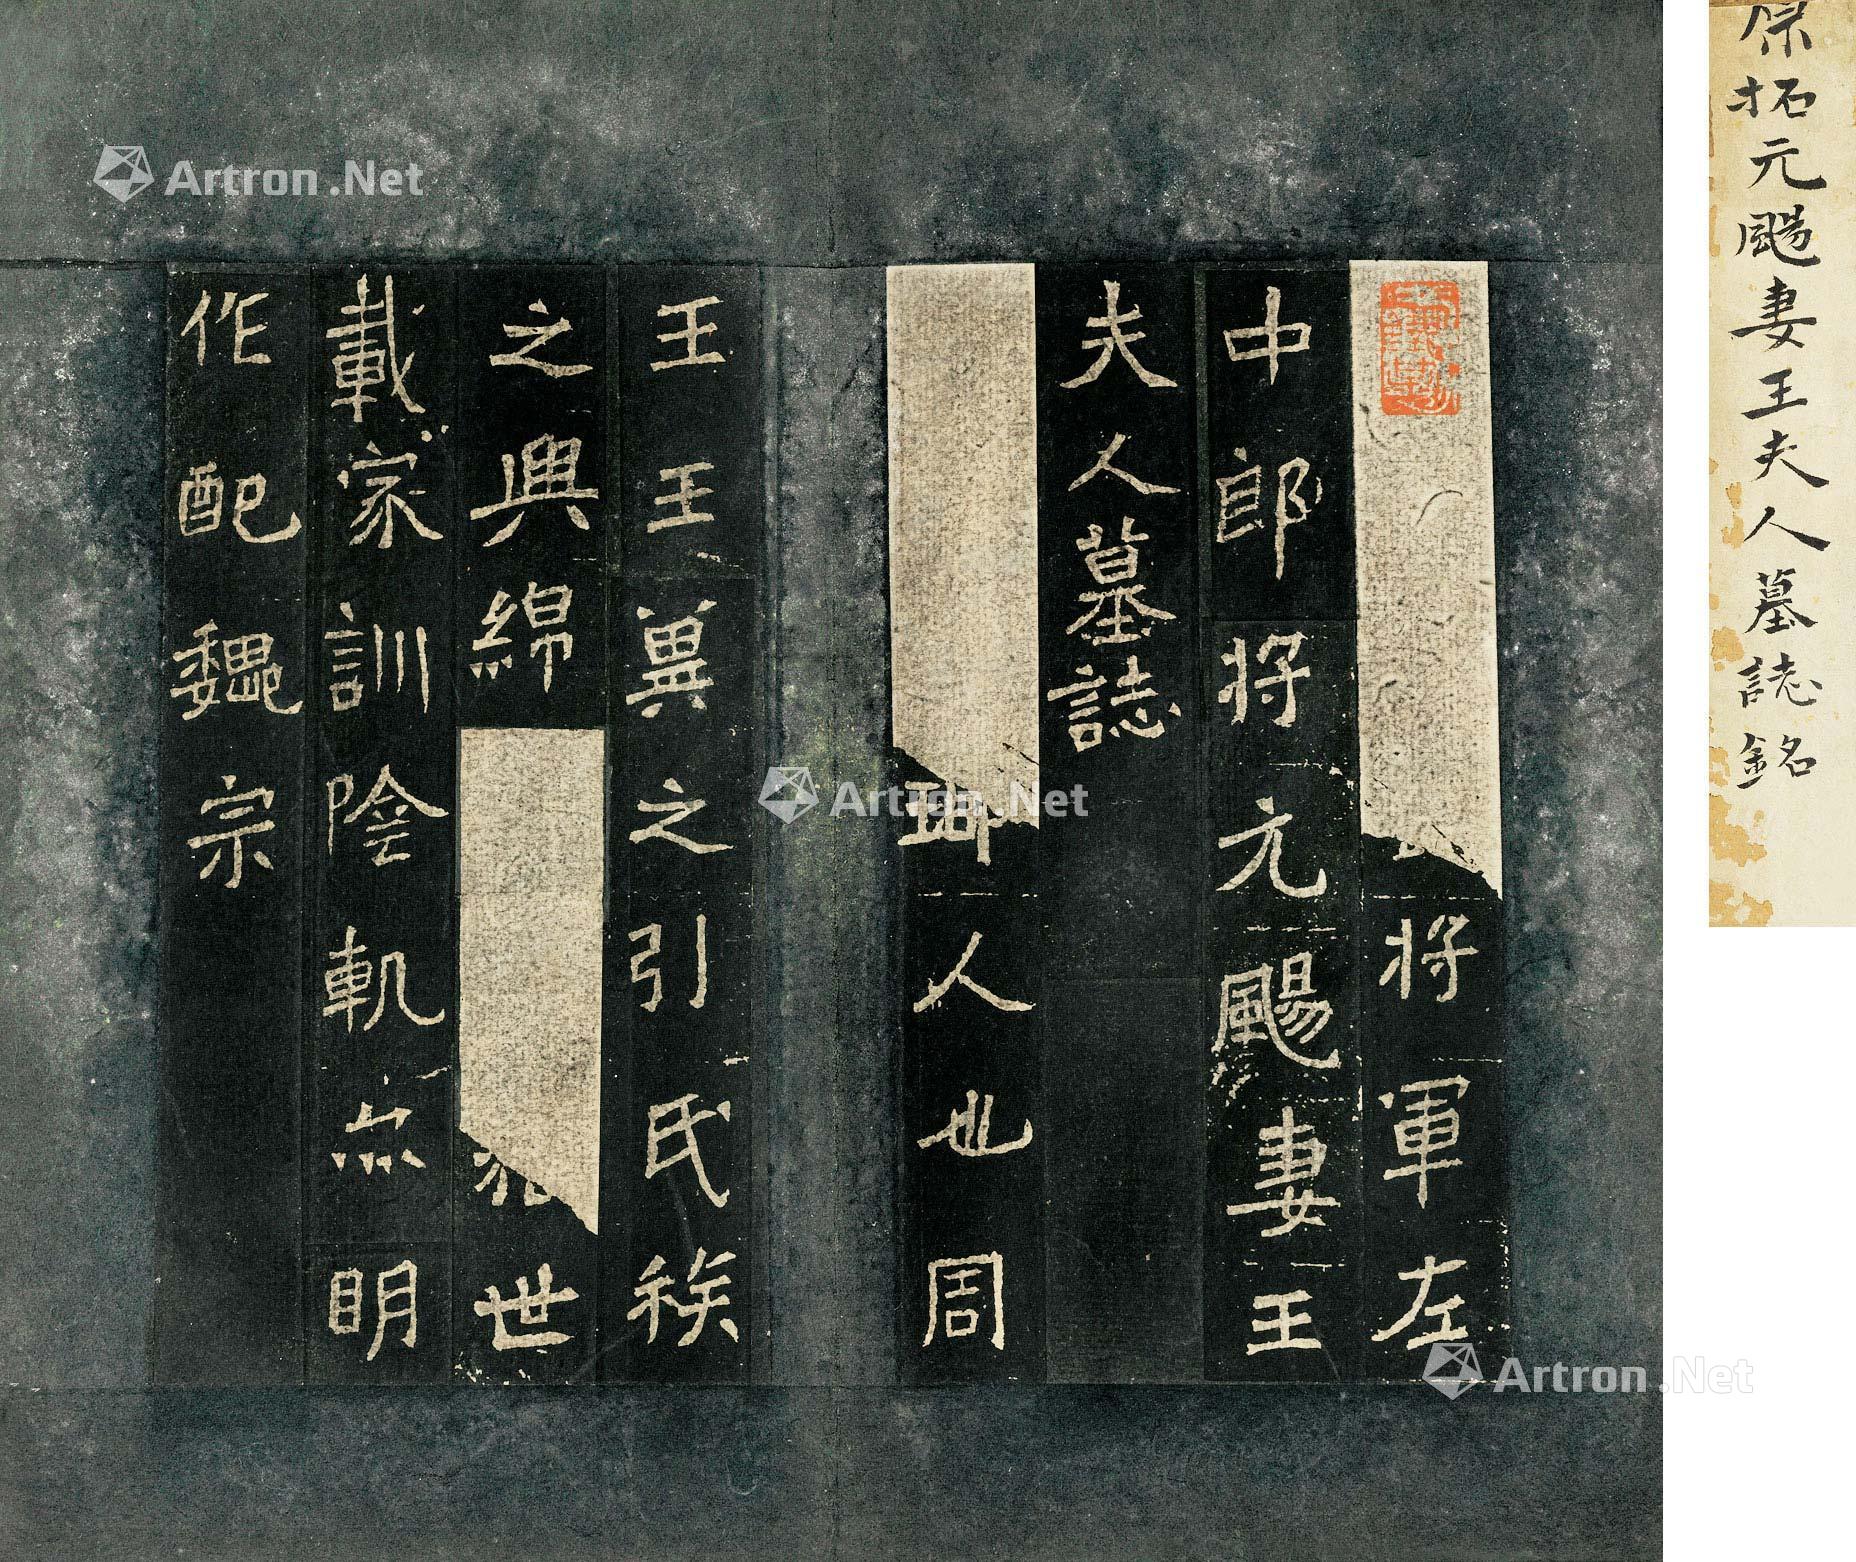 拓元颺妻王夫人墓誌銘
將軍左
中郎將元颺妻王
夫人墓誌
人也周
王王異之引氏族
之興綿
世
載家訓陰軌亦明
作配魏宗
Artron.Net
Artron.Net
Artron.Net